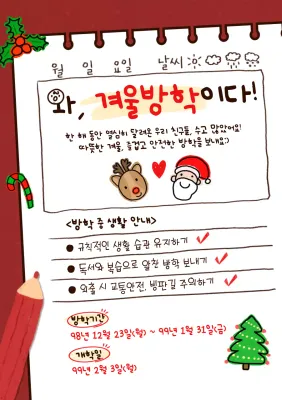 월 일 요일 날씨
와, 겨울방학이다!
한 해 동안 열심히 달려온 우리 친구들, 수고 많았어요!
따뜻한 겨울, 즐겁고 안전한 방학을 보내요:)
<방학 중 생활 안내>
● 규칙적인 생활 습관 유지하기
● 독서와 복습으로 알찬 방학 보내기
● 외출 시 교통안전, 빙판길 주의하기
방학기간
98년 12월 23일(월) ~ 99년 1월 31일(금)
개학일
99년 2월 3일(월)